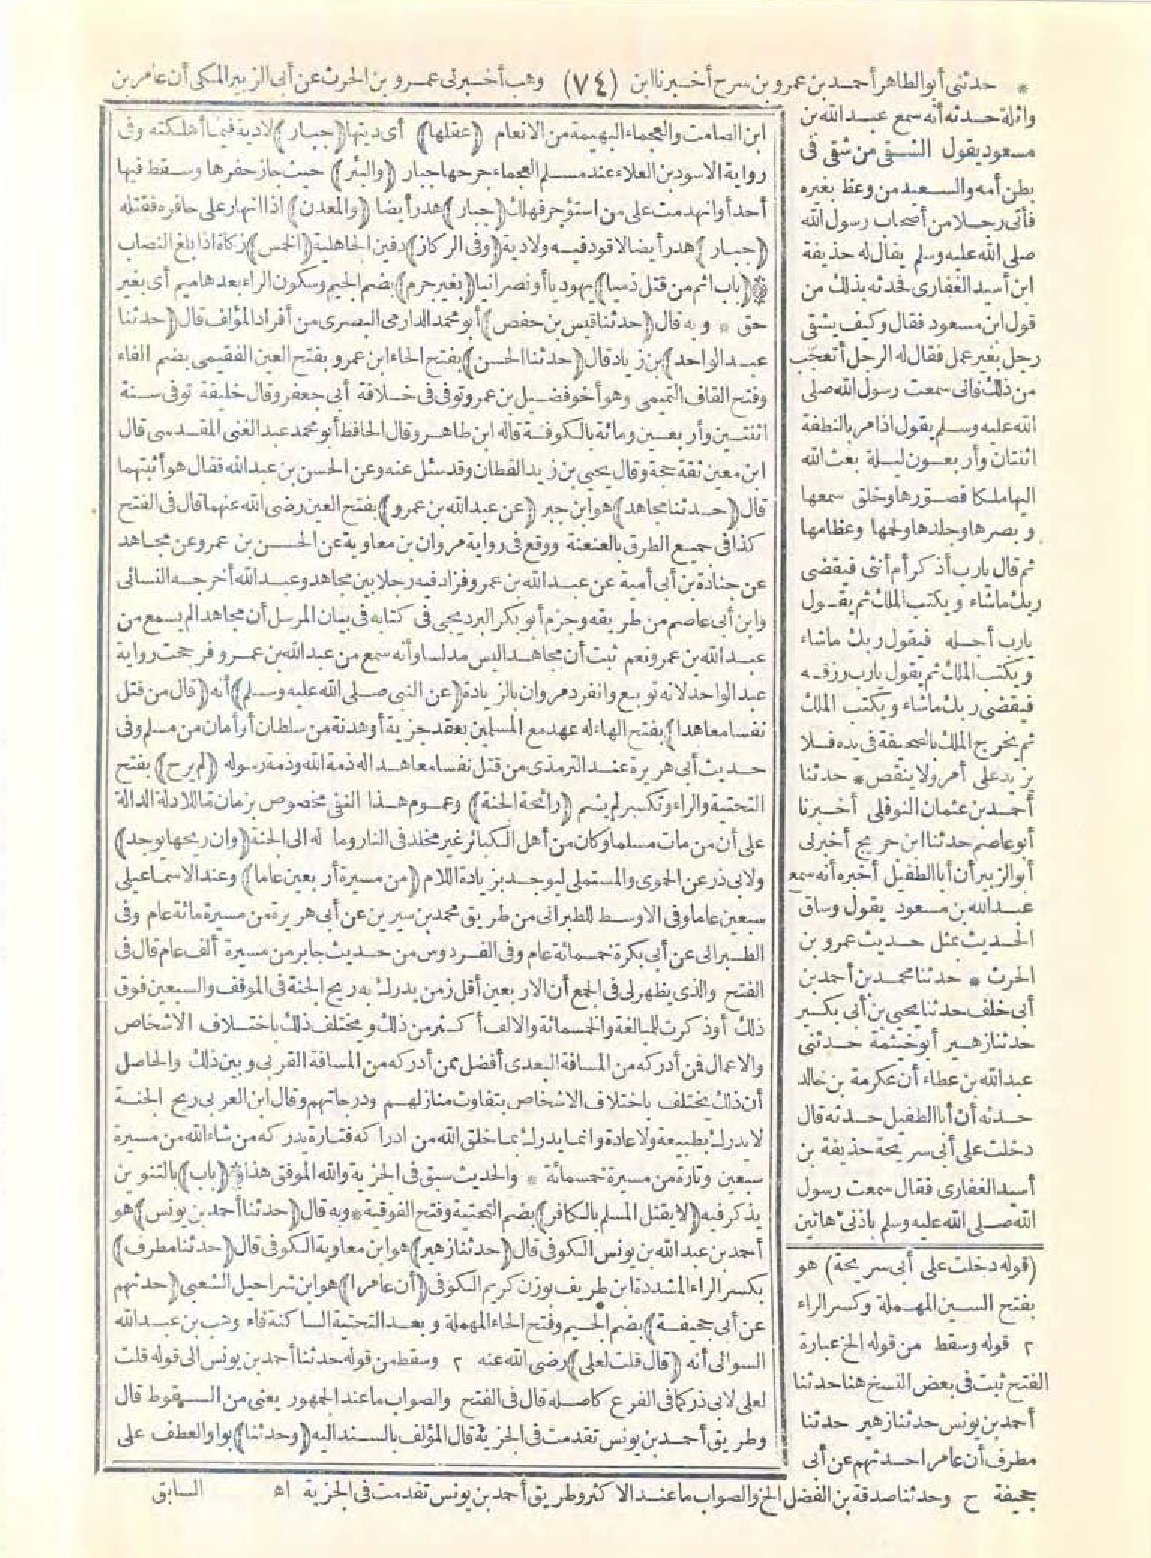 * حدثنى أبو الطاهر أحمد بن عمرو بن سرح أخبرنا ابن (٧٤) وهب أخبرنى عمرو بن الحرث عن أبى الزبير المكى أن عامر بن
واثلة حدثه أنه سمع عبد الله بن
مسعود يقول الشقى من شقى فى
بطن أمه والسعيد من وعظ بغيره
فأتى رجلا من أصحاب رسول الله
صلى الله عليه وسلم يقال له حذيفة
ابن أسيد الغفارى فحدثه بذلك من
قول ابن مسعود فقال وكيف يشقى
رجل بغير عمل فقال له الرجل أتعجب
من ذلك فانى سمعت رسول الله صلى
الله عليه وسلم يقول اذا مر بالنطفة
اثنتان وأربعون ليلة بعث الله
اليها ملكا فصورها وخلق سمعها
وبصرها وجلدها ولحمها وعظامها
ثم قال يارب أذكر أم أنثى فيقضى
ربك ماشاء ويكتب الملك ثم يقول
يارب أجله فيقول ربك ماشاء
ويكتب الملك ثم يقول يارب رزقه
فيقضى ربك ماشاء ويكتب الملك
ثم يخرج الملك بالصحيفة فى يده فلا
يزيد على أمر ولا ينقص * حدثنا
أحمد بن عثمان النوفلى أخبرنا
أبو عاصم حدثنا ابن جريج أخبرنى
أبو الزبير أن أبا الطفيل أخبره أنه سمع
عبد الله بن مسعود يقول وساق
الحديث بمثل حديث عمرو بن
الحرث * حدثنا محمد بن أحمد بن
أبى خلف حدثنا يحيى بن أبى بكير
حدثنا زهير أبو خيثمة حدثنى
عبد الله بن عطاء أن عكرمة بن خالد
حدثه أن أبا الطفيل حدثه قال
دخلت على أبى سريحة حذيفة بن
أسيد الغفارى فقال سمعت رسول
الله صلى الله عليه وسلم باذنى هاتين
(قوله دخلت على أبى سريحة) هو
بفتح السين المهملة وكسر الراء
٢ قوله وسقط من قوله الخ عبارة
الفتح ثبت فى بعض النسخ هنا حدثنا
أحمد بن يونس حدثنا زهير حدثنا
مطرف أن عامرا حدثهم عن أبى
جحيفة ح وحدثنا صدقة بن الفضل الخ والصواب ما عند الاكثر وطريق أحمد بن يونس تقدمت فى الجزية اه
ابن الصامت والعجماء البهيمة من الانعام (عقلها) أى ديتها (جبار) لادية فيما أهلكته وفى
رواية الاسود بن العلاء عند مسلم العجماء جرحها جبار (والبئر) حيث جاز حفرها وسقط فيها
أحد أو انهدمت على من استؤجر فهلك (جبار) هدر أيضا (والمعدن) اذا انهار على حافره فقتله
(جبار) هدر أيضا لا قود فيه ولادية (وفى الركاز) دفين الجاهلية (الخمس) زكاة اذا بلغ النصاب
(باب اثم من قتل ذميا) يهوديا أو نصرانيا (بغير جرم) بضم الجيم وسكون الراء بعدها ميم أى بغير
حق * وبه قال (حدثنا قيس بن حفص) أبو محمد الدارمى البصرى من أفراد المؤلف قال (حدثنا
عبد الواحد) بن زياد قال (حدثنا الحسن) بفتح الحاء ابن عمرو بفتح العين الفقيمى بضم الفاء
وفتح القاف التميمى وهو أخو فضيل بن عمرو توفى فى خلافة أبى جعفر وقال خليفة توفى سنة
اثنتين وأربعين ومائة بالكوفة قاله ابن طاهر وقال الحافظ أبو محمد عبد الغنى المقدسى قال
ابن معين ثقة حجة وقال يحيى بن زيد القطان وقد سئل عنه وعن الحسن بن عبد الله فقال هو أثبتهما
قال (حدثنا مجاهد) هو ابن جبر (عن عبد الله بن عمرو) بفتح العين رضى الله عنهما قال فى الفتح
كذا فى جميع الطرق بالعنعنة ووقع فى رواية مروان بن معاوية عن الحسن بن عمرو عن مجاهد
عن جنادة بن أبى أمية عن عبد الله بن عمرو فزاد فيه رجلا بين مجاهد وعبد الله أخرجه النسائى
وابن أبى عاصم من طريقه وجزم أبو بكر البرديجى فى كتابه فى بيان المرسل أن مجاهدا لم يسمع من
عبد الله بن عمرو نعم ثبت أن مجاهدا ليس مدلسا وأنه سمع من عبد الله بن عمرو فرجحت رواية
عبد الواحد لانه توبع وانفرد مروان بالزيادة (عن النبى صلى الله عليه وسلم) أنه (قال من قتل
نفسا معاهدا) بفتح الهاء له عهد مع المسلمين بعقد جزية أو هدنة من سلطان أو أمان من مسلم وفى
حديث أبى هريرة عند الترمذى من قتل نفسا معاهدا له ذمة الله وذمة رسوله (لم يرح) بفتح
التحتية والراء وتكسر لم يشم (رائحة الجنة) وعموم هذا النفى مخصوص بزمان ما للادلة الدالة
على أن من مات مسلما وكان من أهل الكبائر غير مخلد فى النار وما له الى الجنة (وان ريحها يوجد)
ولابى ذر عن الحموى والمستملى ليوجد بزيادة اللام (من مسيرة أربعين عاما) وعند الاسماعيلى
سبعين عاما وفى الاوسط للطبرانى من طريق محمد بن سيرين عن أبى هريرة من مسيرة مائة عام وفى
الطبرانى عن أبى بكرة خمسمائة عام وفى الفردوس من حديث جابر من مسيرة ألف عام قال فى
الفتح والذى يظهر لى فى الجمع أن الاربعين أقل زمن يدرك به ريح الجنة فى الموقف والسبعين فوق
ذلك أو ذكرت للمبالغة والخمسمائة والالف أكثر من ذلك ويختلف ذلك باختلاف الاشخاص
والاعمال فمن أدركه من المسافة البعدى أفضل ممن أدركه من المسافة القربى وبين ذلك والحاصل
أن ذلك يختلف باختلاف الاشخاص بتفاوت منازلهم ودرجاتهم وقال ابن العربى ريح الجنة
لا يدرك بطبيعة ولا عادة وانما يدرك بما خلق الله من ادراكه فتارة يدركه من شاء الله من مسيرة
سبعين وتارة من مسيرة خمسمائة * والحديث سبق فى الجزية والله الموفق هذا (باب) بالتنوين
يذكر فيه (لا يقتل المسلم بالكافر) بضم التحتية وفتح الفوقية * وبه قال (حدثنا أحمد بن يونس) هو
أحمد بن عبد الله بن يونس الكوفى قال (حدثنا زهير) هو ابن معاوية الكوفى قال (حدثنا مطرف)
بكسر الراء المشددة ابن طريف بوزن كريم الكوفى (أن عامرا) هو ابن شراحيل الشعبى (حدثهم
عن أبى جحيفة) بضم الجيم وفتح الحاء المهملة وبعد التحتية الساكنة فاء وهب بن عبد الله
السوائى أنه (قال قلت لعلى) رضى الله عنه ٢ وسقط من قوله حدثنا أحمد بن يونس الى قوله قلت
لعلى لابى ذر كما فى الفرع كاصله قال فى الفتح والصواب ما عند الجمهور يعنى من السقوط قال
وطريق أحمد بن يونس تقدمت فى الجزية قال المؤلف بالسند اليه (وحدثنا) بواو العطف على
السابق